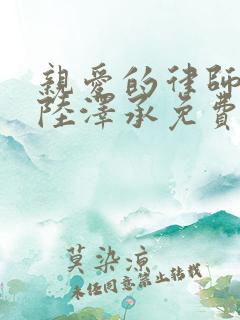 親愛的律師
陸澤承免費
莫染涼
未经同意禁止转载